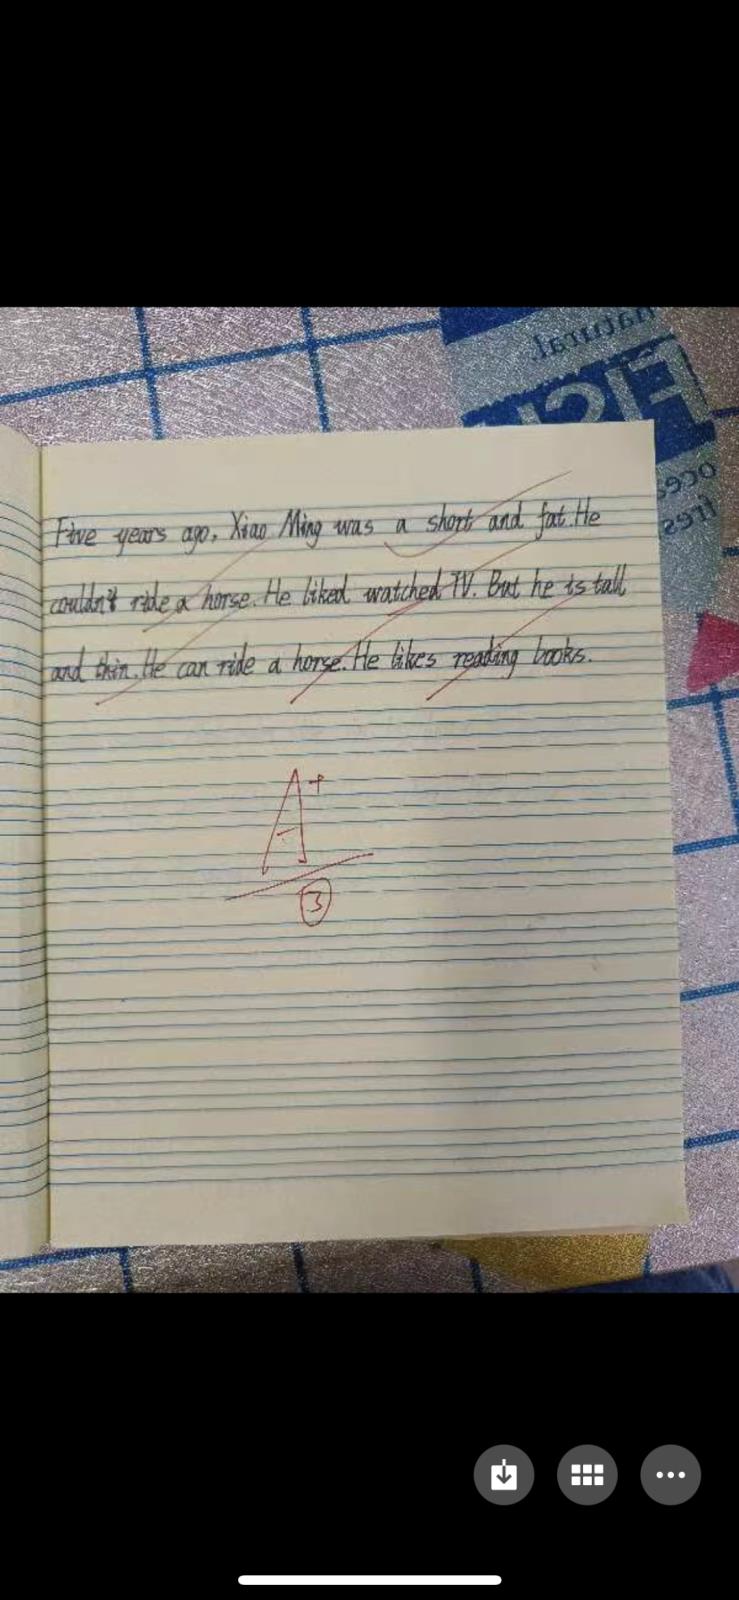 Five years ago, Xiao Ming was a short and fat. He
couldn't ride a horse. He liked watched TV. But he is tall
and thin. He can ride a horse. He likes reading books.
A+
3
natural.
FISH
ocea
fres